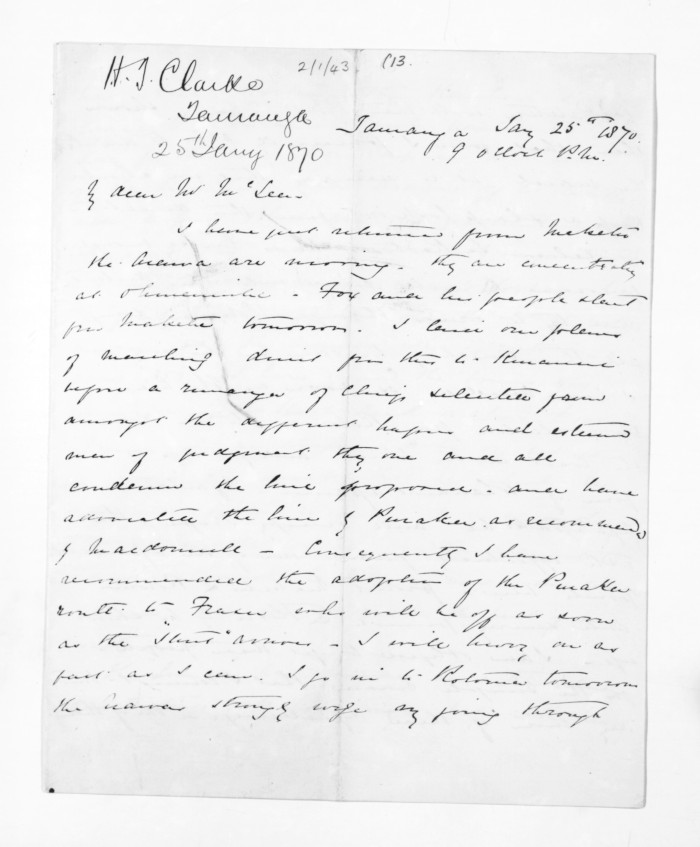 H. T. Clarke
Tauranga
25th Jany 1870
2/1/43
C13.
Tauranga Jany 25th 1870.
9 o'clock P.M.
My dear Mr McLean
I have just returned from Maketu
the Arawa are moving. they are concentrating
at Ohinemutu. Fox and his people start
for Maketu tomorrow. I laid our plans
of marching direct from this to
upon a of Chiefs selected from
amongst the different hapus and esteemed
men of judgment they one and all
condemn the line proposed. and have
advocated the line of Puraku as recommended
by Macdonnell — Consequently I have
recommended the adoption of the Puraku
route to Fraser who will be off as soon
as the "Sturt" arrives — I will hurry on as
fast as I can. I go in to Rotorua tomorrow
the Arawas strongly urge my going through